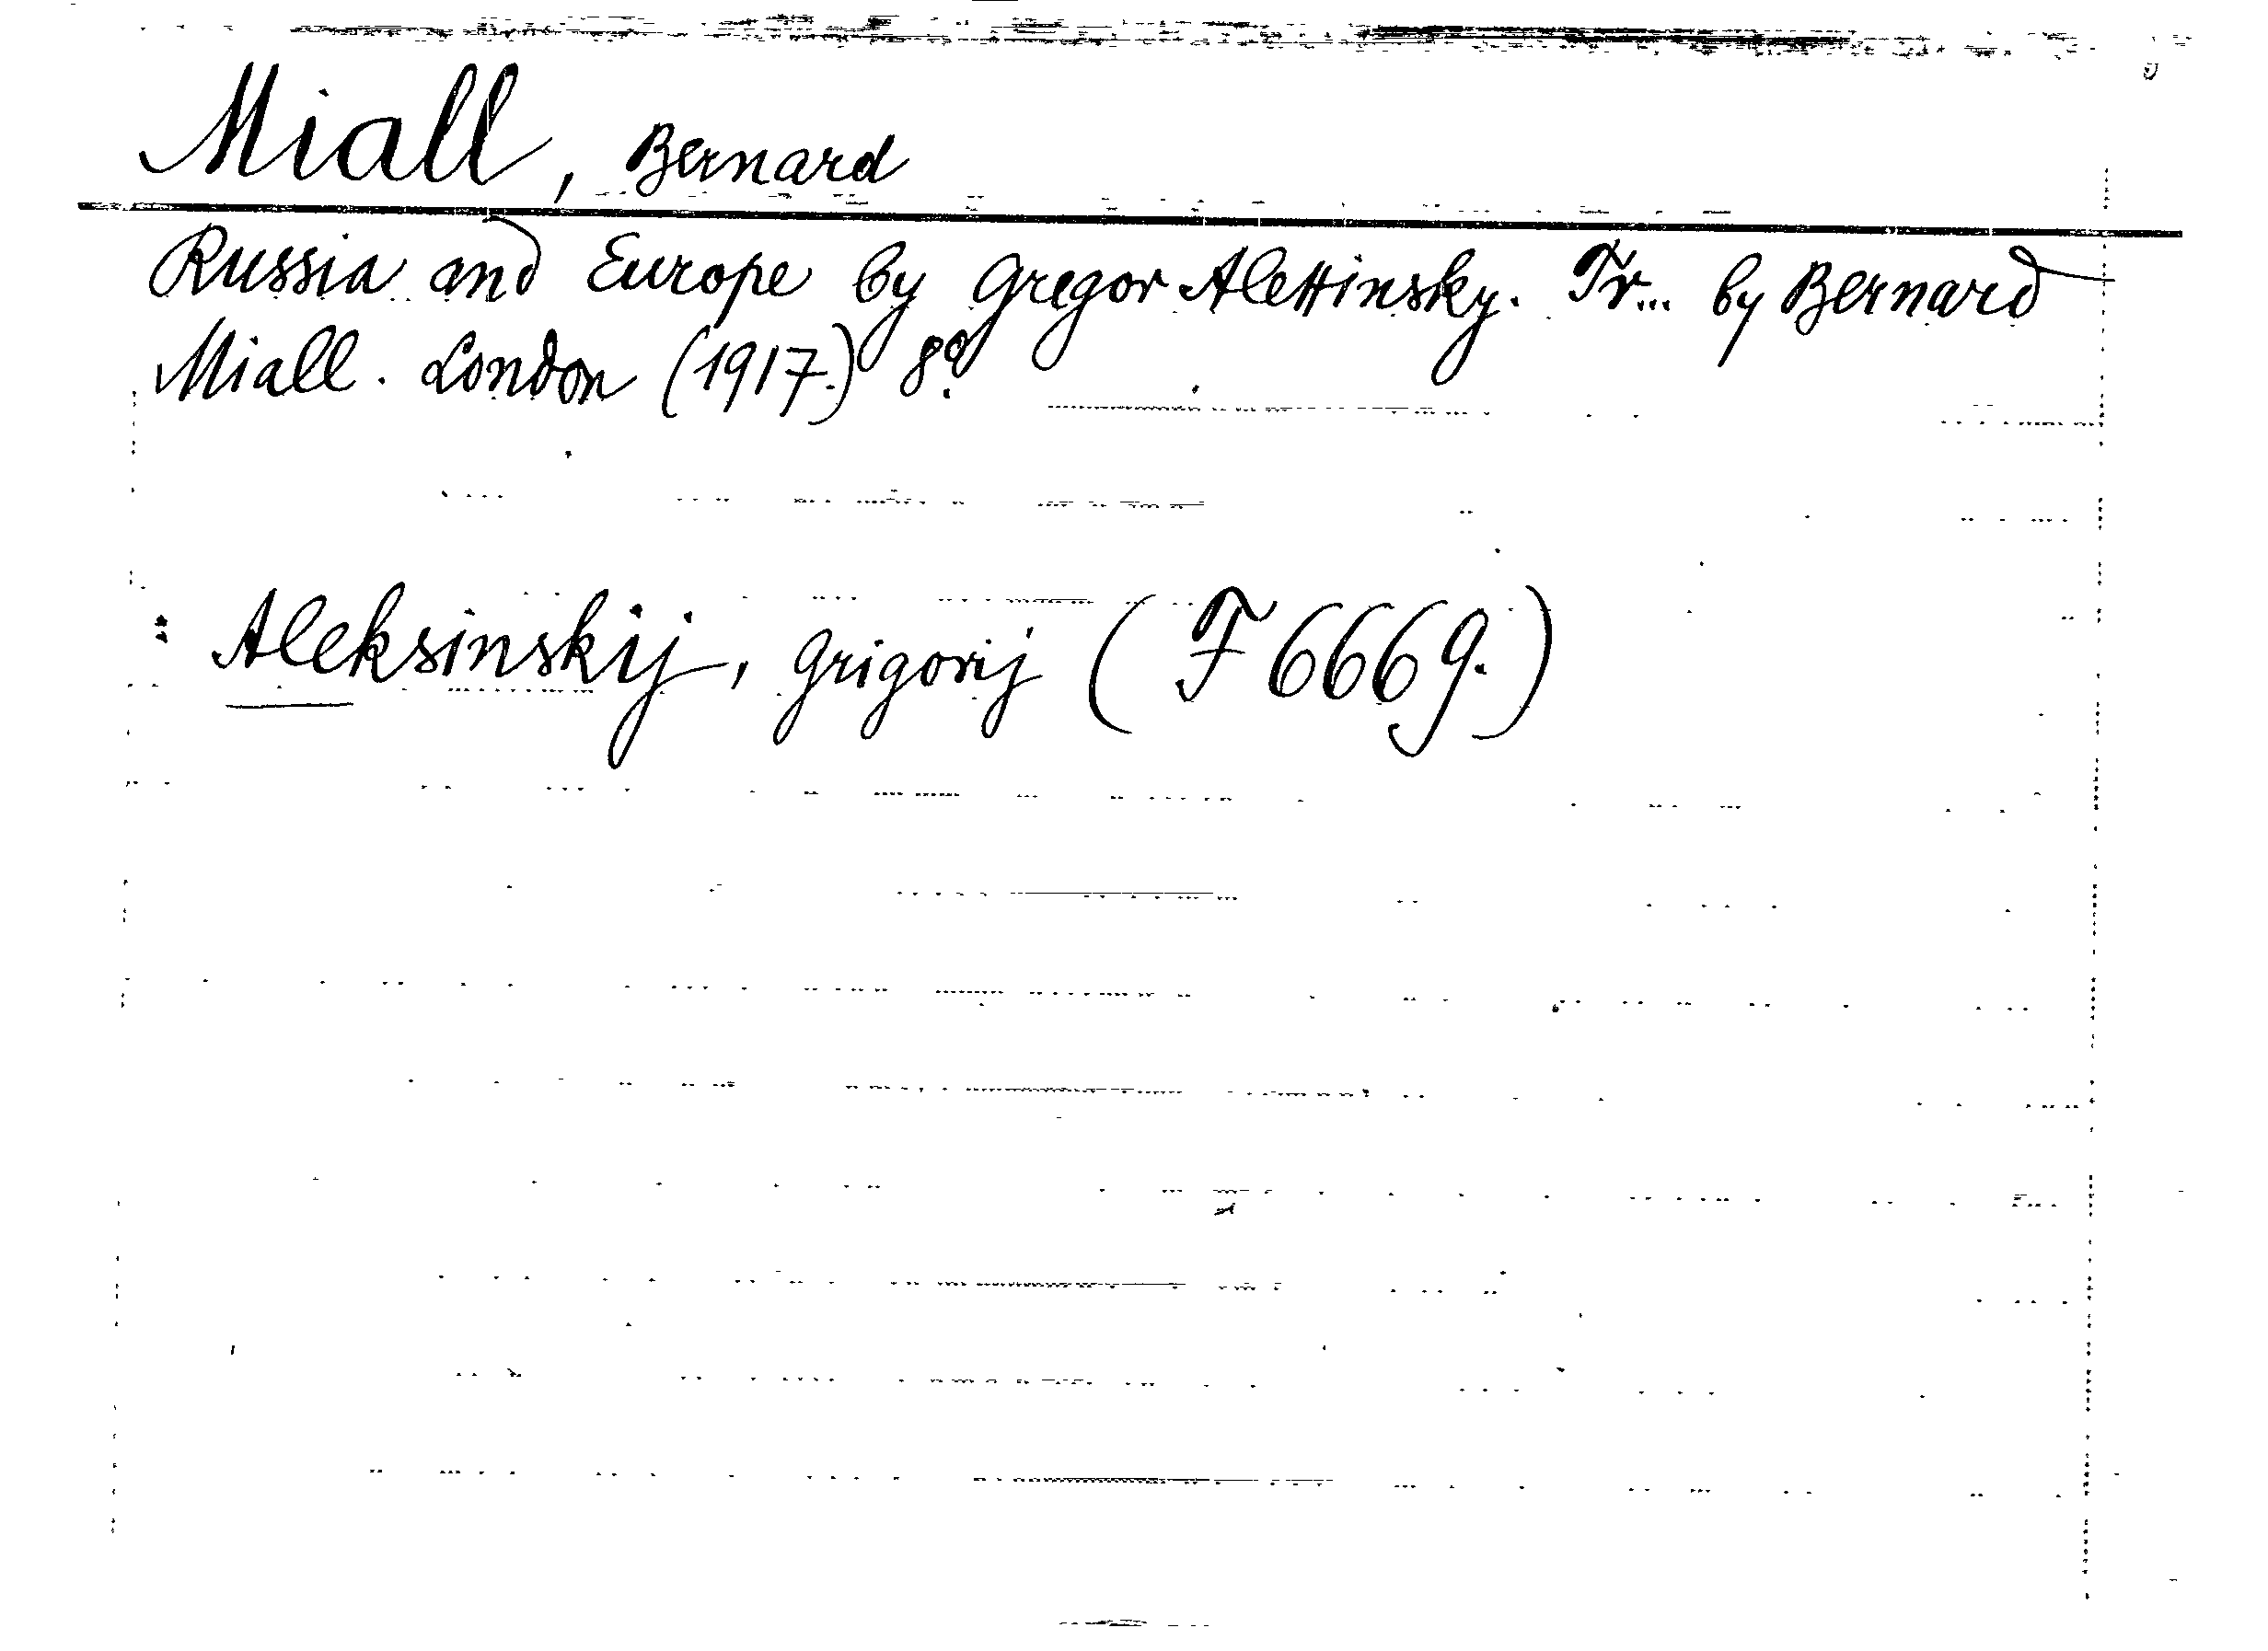 Miall, Bernard
Russia and Europe by Gregor Alettinsky. Tr... by Bernard
Miall. London (1917.) 8°.
: Aleksinskij, Grigorij (F 6669.)